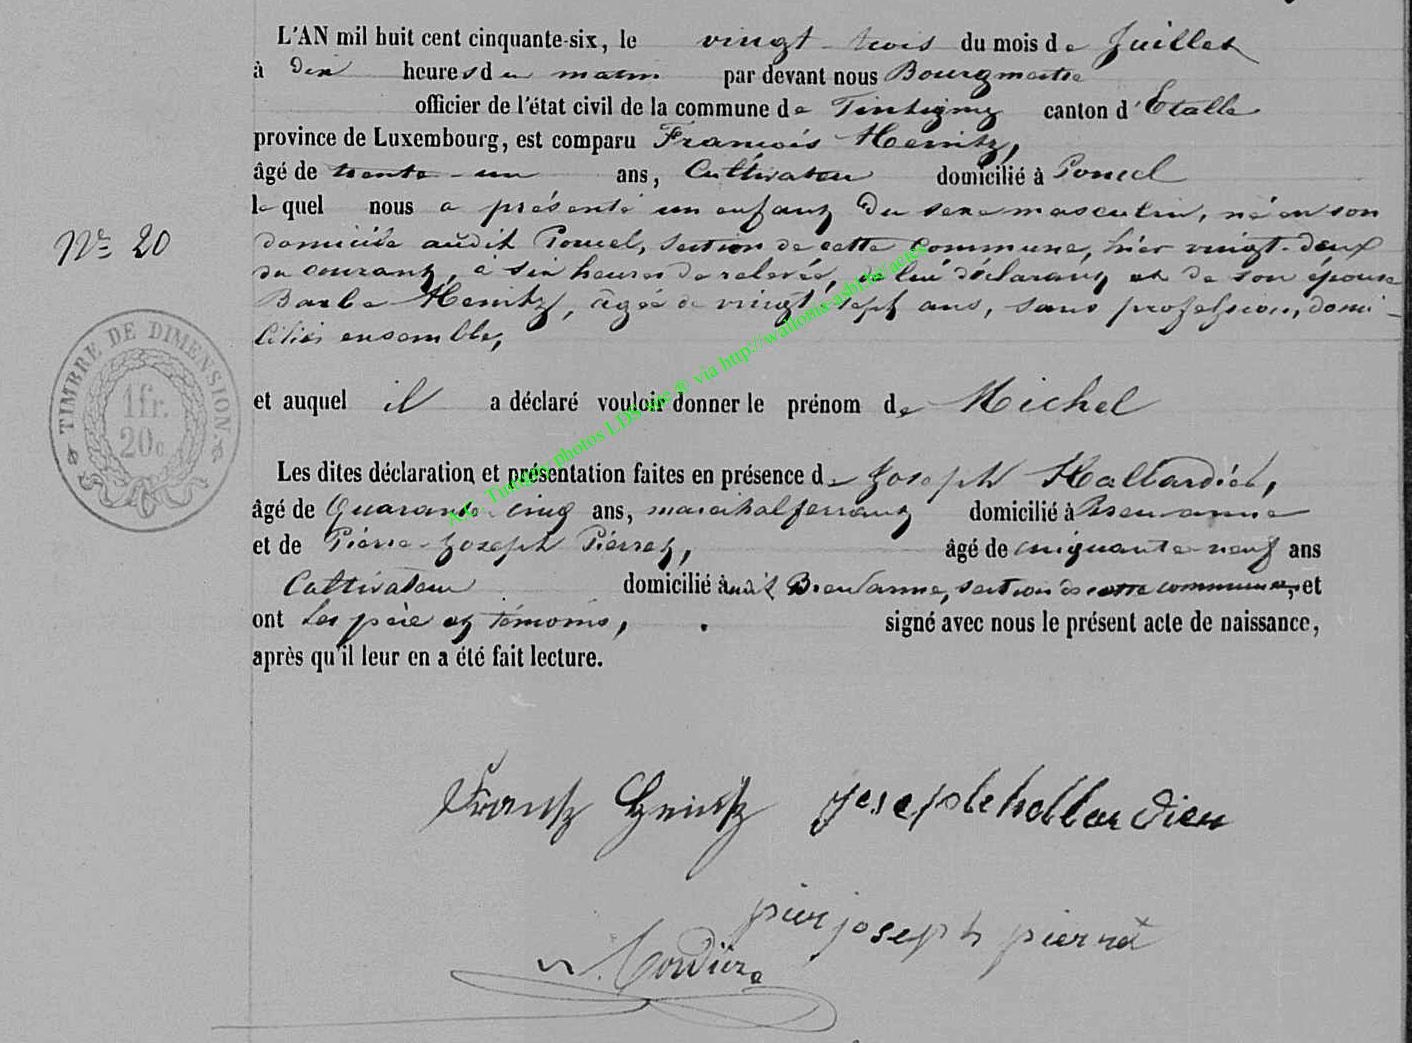 L'AN mil huit cent cinquante-six, le vingt trois du mois de Juillet
à dix heures du matin par devant nous Bourgmestre
officier de l'état civil de la commune de Tintigny canton d'Etalle
province de Luxembourg, est comparu François Heintz,
âgé de trente-un ans, Cultivateur domicilié à Poncel
lequel nous a présenté un enfant du sexe masculin, né en son
N° 20
domicile audit Poncel, section de cette commune, hier vingt-deux
du courant, à six heures de relevée, de lui déclarant et de son épouse
Barbe Heintz, âgée de vingt sept ans, sans profession, domi-
ciliés ensemble,
TIMBRE DE DIMENSION.
1 fr.
20c
et auquel il a déclaré vouloir donner le prénom de Michel
Les dites déclaration et présentation faites en présence de Joseph Hallardien,
âgé de Quarante cinq ans, maréchal ferrant domicilié à Breuvanne
et de Pierre-Joseph Pierret, âgé de cinquante-neuf ans
Cultivateur domicilié audit Breuvanne, section de cette commune, et
ont les père et témoins, signé avec nous le présent acte de naissance,
après qu'il leur en a été fait lecture.
A.C. Tintigny photos LDS site ® via http://wallonia-asbl.be/actes
Frantz Heintz joseph hallardien
pier joseph pierret